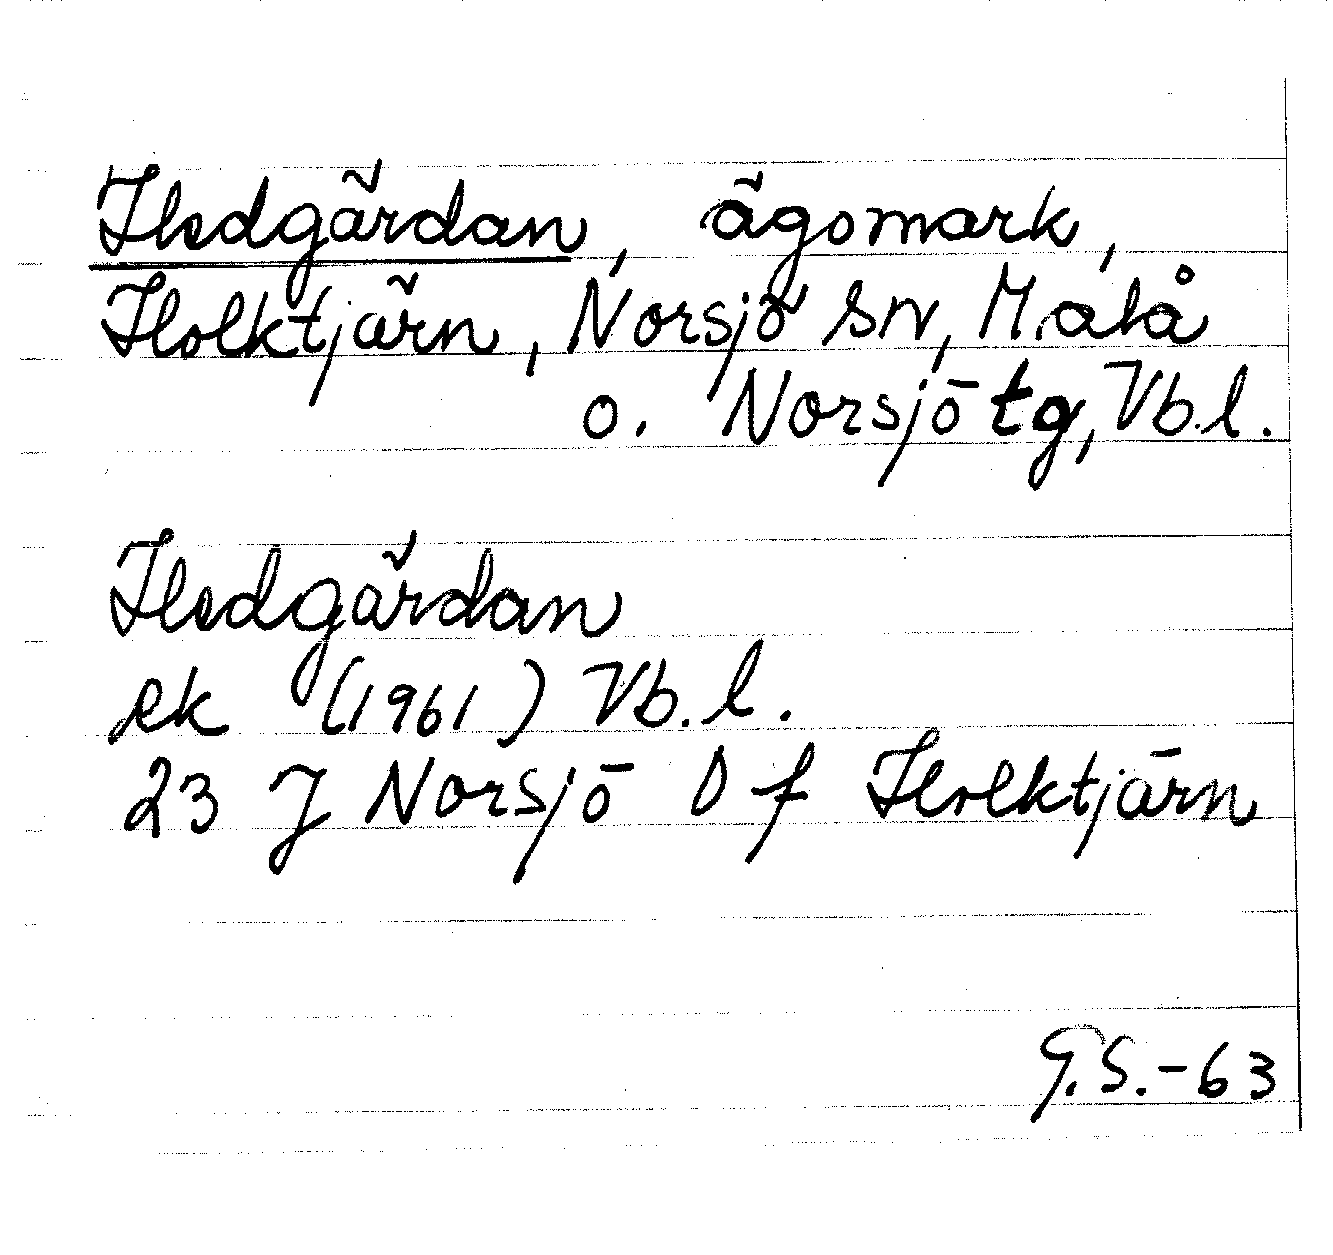 Hedgärdan, ägomark,
Holktjärn, Norsjö sn, Malå
o. Norsjö tg, Vb.l.
Hedgärdan
ek (1961) Vb.l.
23 J Norsjö O f Holktjärn
G.S.-63